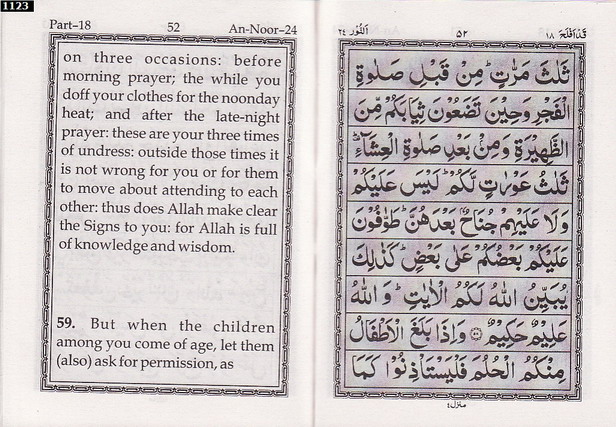 1123
Part-18 52 An-Noor-24
on three occasions: before
morning prayer; the while you
doff your clothes for the noonday
heat; and after the late-night
prayer: these are your three times
of undress: outside those times it
is not wrong for you or for them
to move about attending to each
other: thus does Allah make clear
the Signs to you: for Allah is full
of knowledge and wisdom.
59. But when the children
among you come of age, let them
(also) ask for permission, as
النُّور ٢٤ ٥٢ قَدْ أَفْلَحَ ١٨
ثَلٰثَ مَرّٰتٍ ؕ مِنْ قَبْلِ صَلٰوةِ
الْفَجْرِ وَحِيْنَ تَضَعُوْنَ ثِيَابَكُمْ مِّنَ
الظَّهِيْرَةِ وَمِنْۢ بَعْدِ صَلٰوةِ الْعِشَآءِ ؕ
ثَلٰثُ عَوْرٰتٍ لَّكُمْ ؕ لَيْسَ عَلَيْكُمْ
وَلَا عَلَيْهِمْ جُنَاحٌۢ بَعْدَهُنَّ ؕ طَوّٰفُوْنَ
عَلَيْكُمْ بَعْضُكُمْ عَلٰى بَعْضٍ ؕ كَذٰلِكَ
يُبَيِّنُ اللّٰهُ لَكُمُ الْاٰيٰتِ ؕ وَ اللّٰهُ
عَلِيْمٌ حَكِيْمٌ ۝٥٨ وَاِذَا بَلَغَ الْاَطْفَالُ
مِنْكُمُ الْحُلُمَ فَلْيَسْتَاْذِنُوْا كَمَا
منزل٤